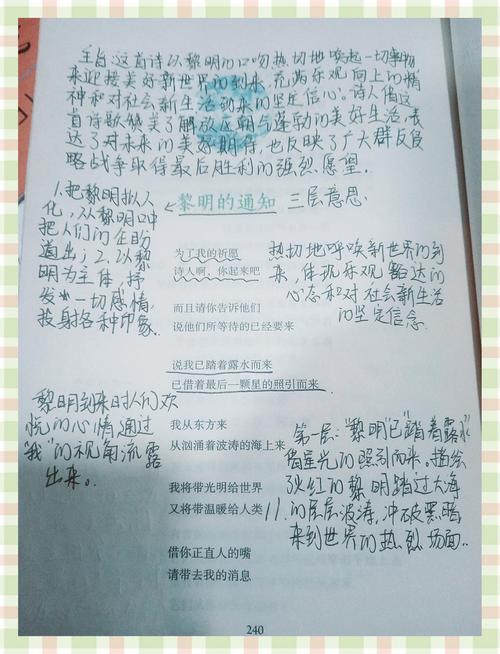 主旨:这首诗以黎明的口吻热切地唤起一切事物
来迎接美好新世界的到来,充满乐观向上的精
神和对社会新生活动来的坚定信心。诗人借这
首诗歌赞美了解放区朝气蓬勃的美好生活,表
达了对未来的美好期待,也反映了广大群反侵
略战争取得最后胜利的强烈愿望。
1.把黎明拟人
化,从黎明口中
把人们的企盼
道出;2.以黎
明为主体,抒
发出一切感情,
投射各种印象.
黎明的通知
三层意思.
为了我的祈愿
诗人啊,你起来吧
热切地呼唤新世界的到
来,体现乐观豁达的
心态和对社会新生活
的坚定信念
而且请你告诉他们
说他们所等待的已经要来
说我已踏着露水而来
已借着最后一颗星的照引而来
黎明到来时人们欢
悦的心情通过
“我”的视角流露
出来。
我从东方来
从汹涌着波涛的海上来
我将带光明给世界
又将带温暖给人类
第一层:“黎明”已“踏着露水”
借星光的照引而来。描绘
火红的黎明踏过大海
的层层波涛,冲破黑暗
来到世界的热烈场面.
借你正直人的嘴
请带去我的消息
240